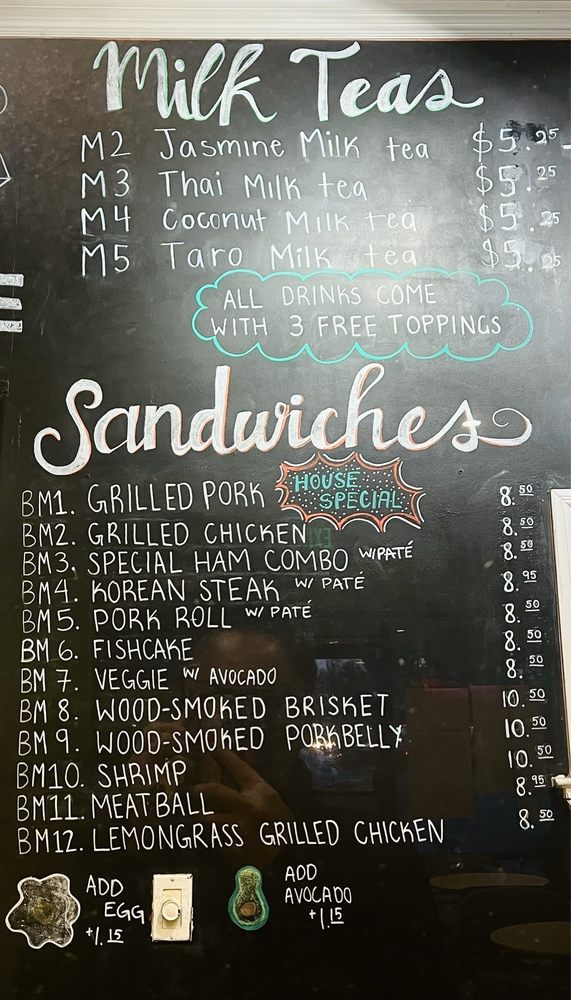 Milk Teas
M2 Jasmine Milk tea $5.25
M3 Thai Milk tea $5.25
M4 Coconut Milk tea $5.25
M5 Taro Milk tea $5.25
ALL DRINKS COME
WITH 3 FREE TOPPINGS
Sandwiches
BM1. GRILLED PORK HOUSE SPECIAL 8.50
BM2. GRILLED CHICKEN 8.50
BM3. SPECIAL HAM COMBO W/PATÉ 8.50
BM4. KOREAN STEAK W/ PATÉ 8.95
BM5. PORK ROLL W/ PATÉ 8.50
BM 6. FISHCAKE 8.50
BM 7. VEGGIE W/ AVOCADO 8.50
BM 8. WOOD-SMOKED BRISKET 10.50
BM 9. WOOD-SMOKED PORKBELLY 10.50
BM10. SHRIMP 10.50
BM11. MEATBALL 8.95
BM12. LEMONGRASS GRILLED CHICKEN 8.50
ADD
EGG
+1.15
ADD
AVOCADO
+1.15